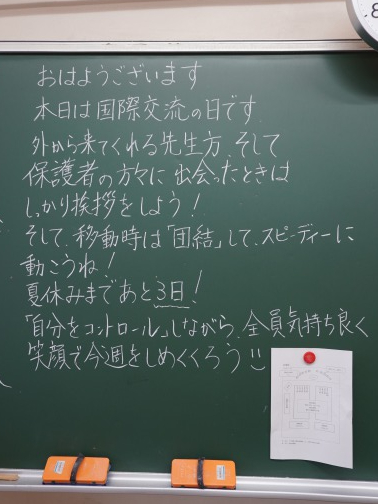 おはようございます
本日は国際交流の日です.
外から来てくれる先生方、そして
保護者の方々に出会ったときは
しっかり挨拶をしよう!
そして、移動時は「団結」して、スピーディーに
動こうね!
夏休みまであと3日!
「自分をコントロール」しながら、全員気持ち良く
笑顔で今週をしめくくろう